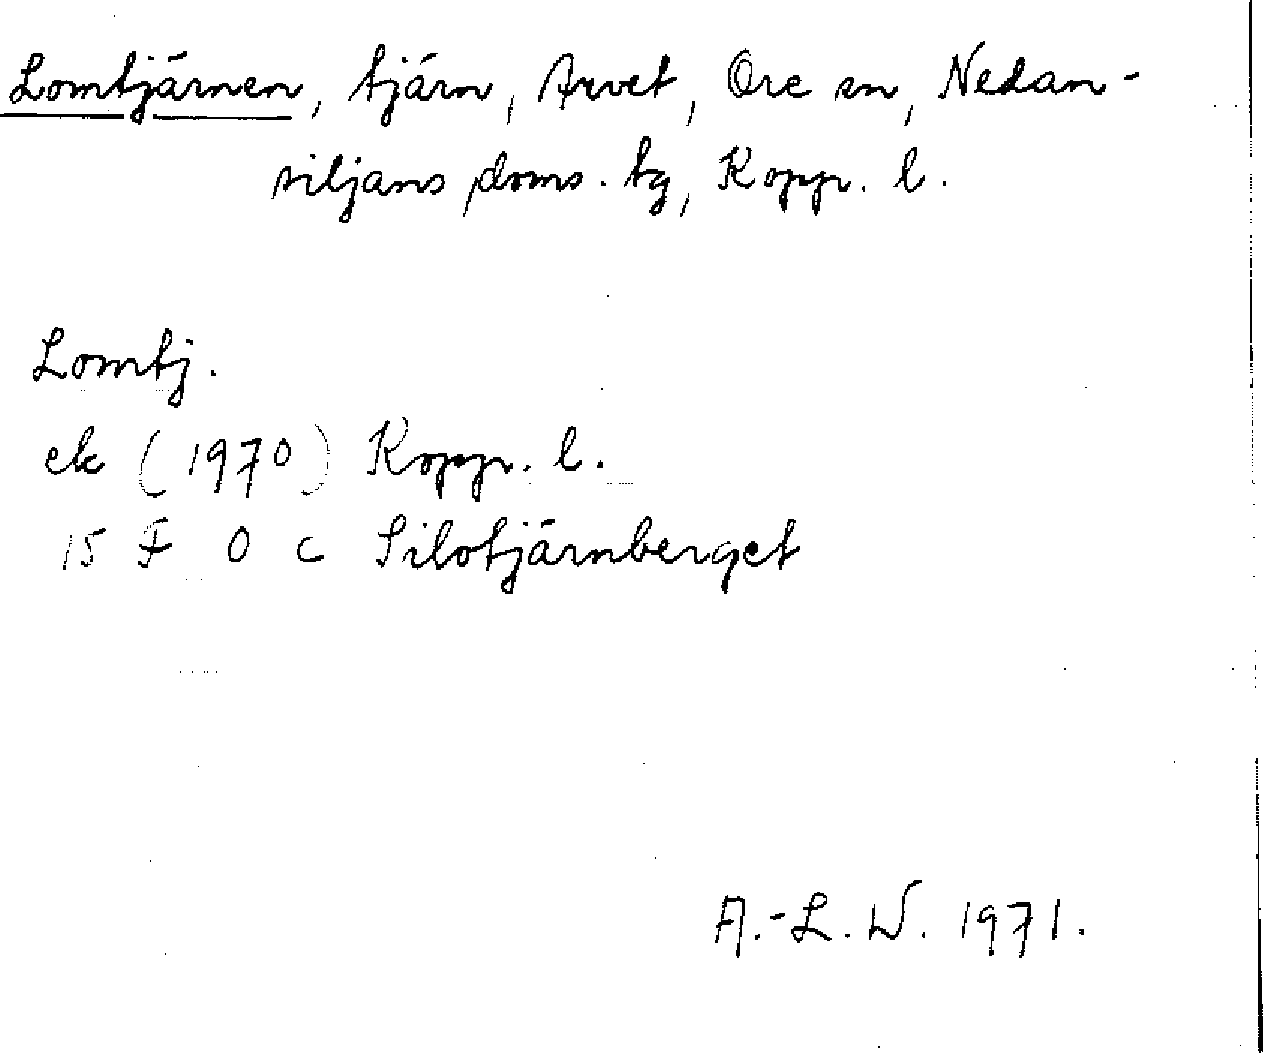 Lomtjärnen, tjärn, Arvet, Ore sn, Nedan-
siljans doms. tg, Kopp. l.
Lomtj.
ek (1970) Kopp. l.
15 F 0 c Silotjärnberget
A.-L. W. 1971.